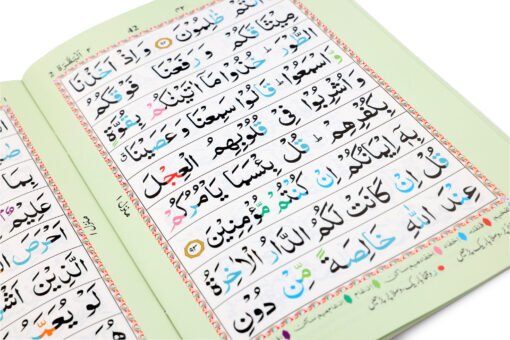 البقرة ٢
42
ظٰلِمُوْنَ ﴿٩٢﴾ وَ اِذْ اَخَذْنَا
مِيْثَاقَكُمْ وَ رَفَعْنَا فَوْقَكُمُ
الطُّوْرَ ؕ خُذُوْا مَاۤ اٰتَيْنٰكُمْ بِقُوَّةٍ
وَّ اسْمَعُوْا ؕ قَالُوْا سَمِعْنَا وَ عَصَيْنَا
وَ اُشْرِبُوْا فِيْ قُلُوْبِهِمُ الْعِجْلَ
بِكُفْرِهِمْ ؕ قُلْ بِئْسَمَا يَاْمُرُكُمْ
بِهٖۤ اِيْمَانُكُمْ اِنْ كُنْتُمْ مُّؤْمِنِيْنَ ﴿٩٣﴾
قُلْ اِنْ كَانَتْ لَكُمُ الدَّارُ الْاٰخِرَةُ
عِنْدَ اللّٰهِ خَالِصَةً مِّنْ دُوْنِ
منزل ١
بِمَا
عَلِيْمٌۢ
اَحْرَصَ
الَّذِيْنَ
لَوْ يُعَمَّرُ